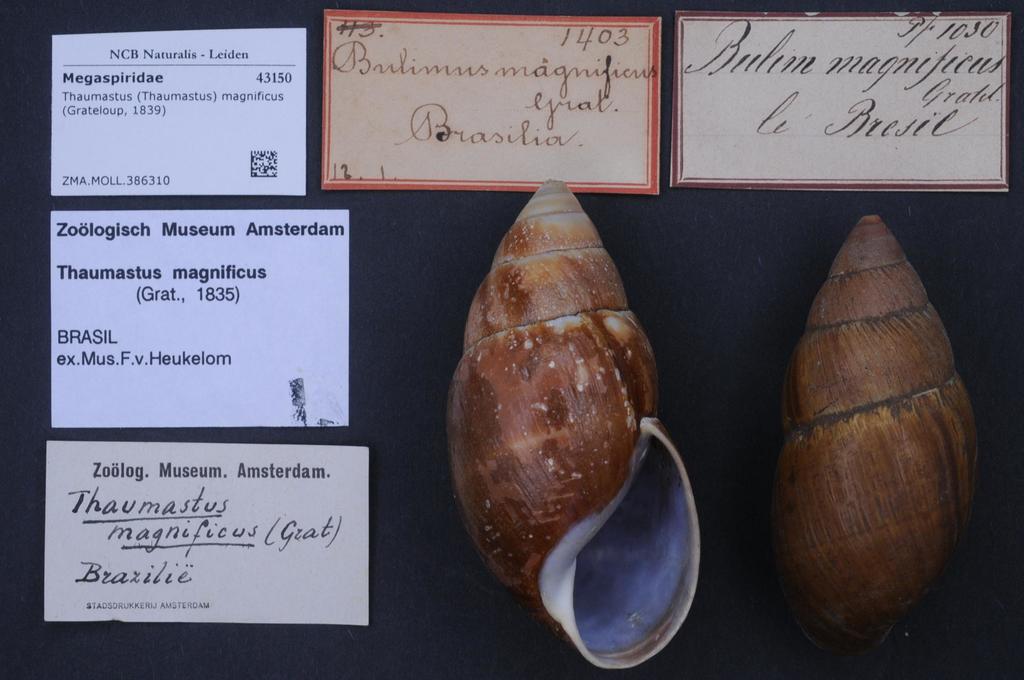 NCB Naturalis - Leiden
Megaspiridae 43150
Thaumastus (Thaumastus) magnificus
(Grateloup, 1839)
ZMA.MOLL.386310
Zoölogisch Museum Amsterdam
Thaumastus magnificus
(Grat., 1835)
BRASIL
ex.Mus.F.v.Heukelom
Zoölog. Museum. Amsterdam.
Thaumastus
magnificus (Grat)
Brazilië
STADSDRUKKERIJ AMSTERDAM
1403
Bulimus magnificus
Grat.
Brasilia.
Pf 1030
Bulim magnificus
Gratel.
le Bresil